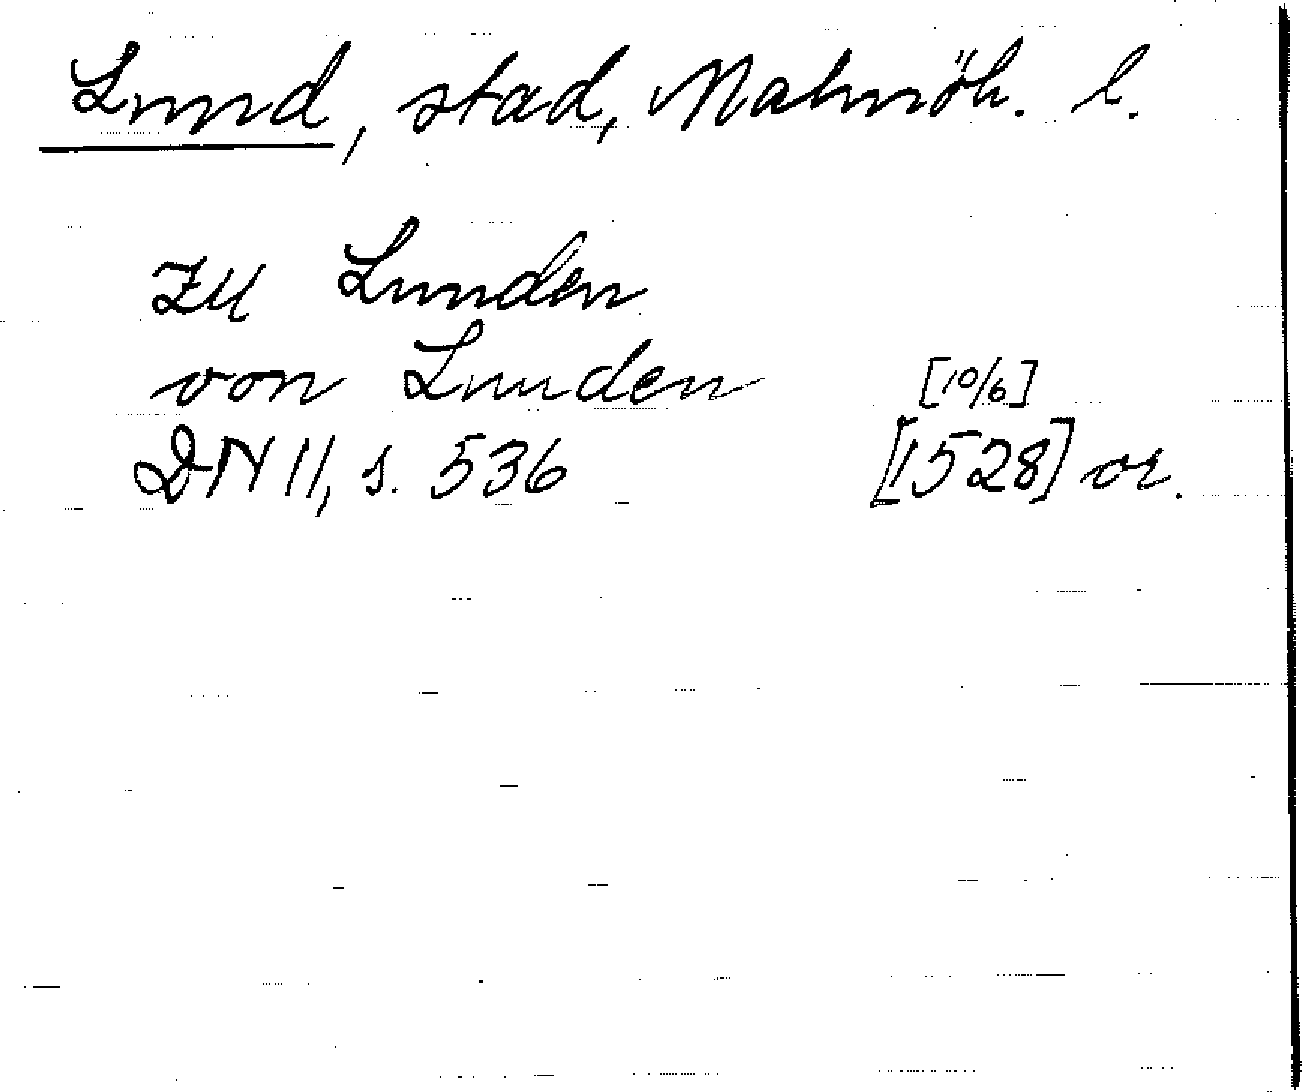 Lund, stad, Malmöh. l.
zu Lunden
von Lunden [10/6]
DN 11, s. 536 [1528] or.